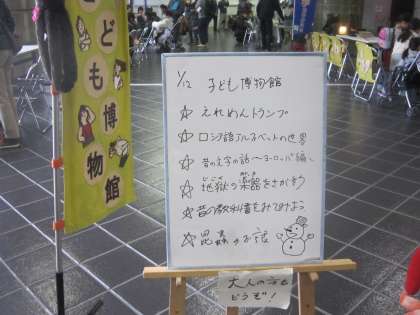 こども博物館
1/12 子ども博物館
☆ えれめんトランプ
☆ ロシア語アルファベットの世界
☆ 昔の文字の話〜ヨーロッパ編〜
☆ 地獄の楽器をさがそう
☆ 昔の教科書をみてみよう
☆ 昆虫のお家
大人の方も
どうぞ!